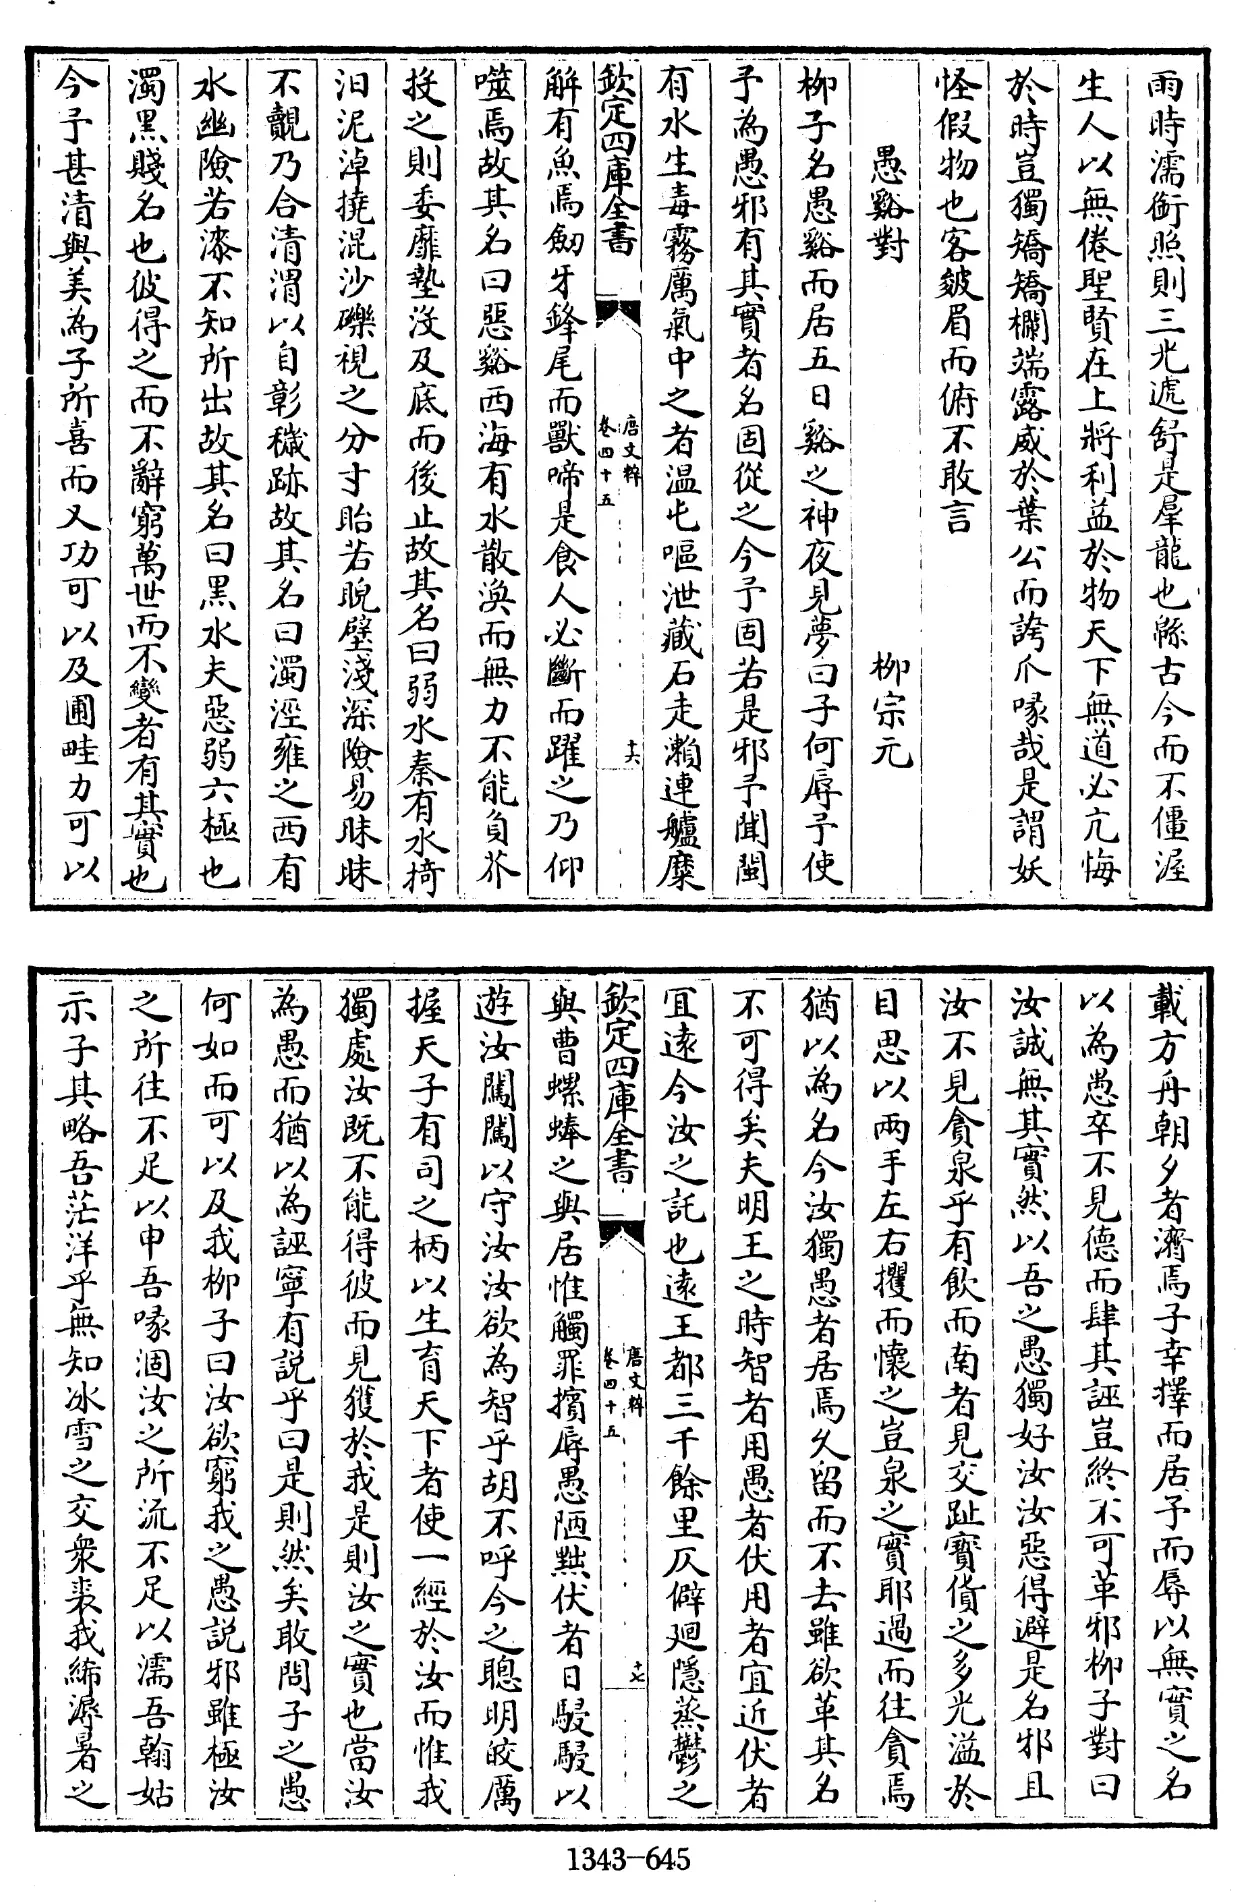 雨時濡銜照則三光遞舒是犀龍也緜古今而不僵渥
生人以無倦聖賢在上將利益於物天下無道必亢悔
於時豈獨矯矯欄端露威於葉公而誇爪喙哉是謂妖
怪假物也客皴眉而俯不敢言
愚谿對 柳宗元
柳子名愚谿而居五日谿之神夜見夢曰子何辱予使
予為愚邪有其實者名固從之今予固若是邪予聞閩
有水生毒霧厲氣中之者温屯嘔泄藏石走瀨連艫糜
欽定四庫全書 唐文粹 卷四十五 十六
解有魚焉鋸牙鋒尾而獸啼是食人必斷而躍之乃仰
噬焉故其名曰惡谿西海有水散渙而無力不能負芥
投之則委靡墊没及底而後止故其名曰弱水秦有水掎
汩泥淖撓混沙礫視之分寸眙若睨壁淺深險易昧昧
不覿乃合清渭以自彰穢跡故其名曰濁涇雍之西有
水幽險若漆不知所出故其名曰黑水夫惡弱六極也
濁黑賤名也彼得之而不辭窮萬世而不變者有其實也
今予甚清與美為子所喜而又功可以及圃畦力可以
載方舟朝夕者濟焉子幸擇而居予而辱以無實之名
以為愚卒不見德而肆其誣豈終不可革邪柳子對曰
汝誠無其實然以吾之愚獨好汝汝惡得避是名邪且
汝不見貪泉乎有飲而南者見交趾寶貨之多光溢於
目思以兩手左右攫而懷之豈泉之實耶過而往貪焉
猶以為名今汝獨愚者居焉久留而不去雖欲革其名
不可得矣夫明王之時智者用愚者伏用者宜近伏者
宜遠今汝之託也遠王都三千餘里仄僻廻隱蒸鬱之
欽定四庫全書 唐文粹 卷四十五 十七
與曹螺蜯之與居惟觸罪擯辱愚陋黜伏者日駸駸以
遊汝闖闖以守汝汝欲為智乎胡不呼今之聰明皎厲
握天子有司之柄以生育天下者使一經於汝而惟我
獨處汝既不能得彼而見獲於我是則汝之實也當汝
為愚而猶以為誣寧有説乎曰是則然矣敢問子之愚
何如而可以及我柳子曰汝欲窮我之愚説邪雖極汝
之所往不足以申吾喙涸汝之所流不足以濡吾翰姑
示子其略吾茫洋乎無知冰雪之交衆裘我絺溽暑之
1343-645